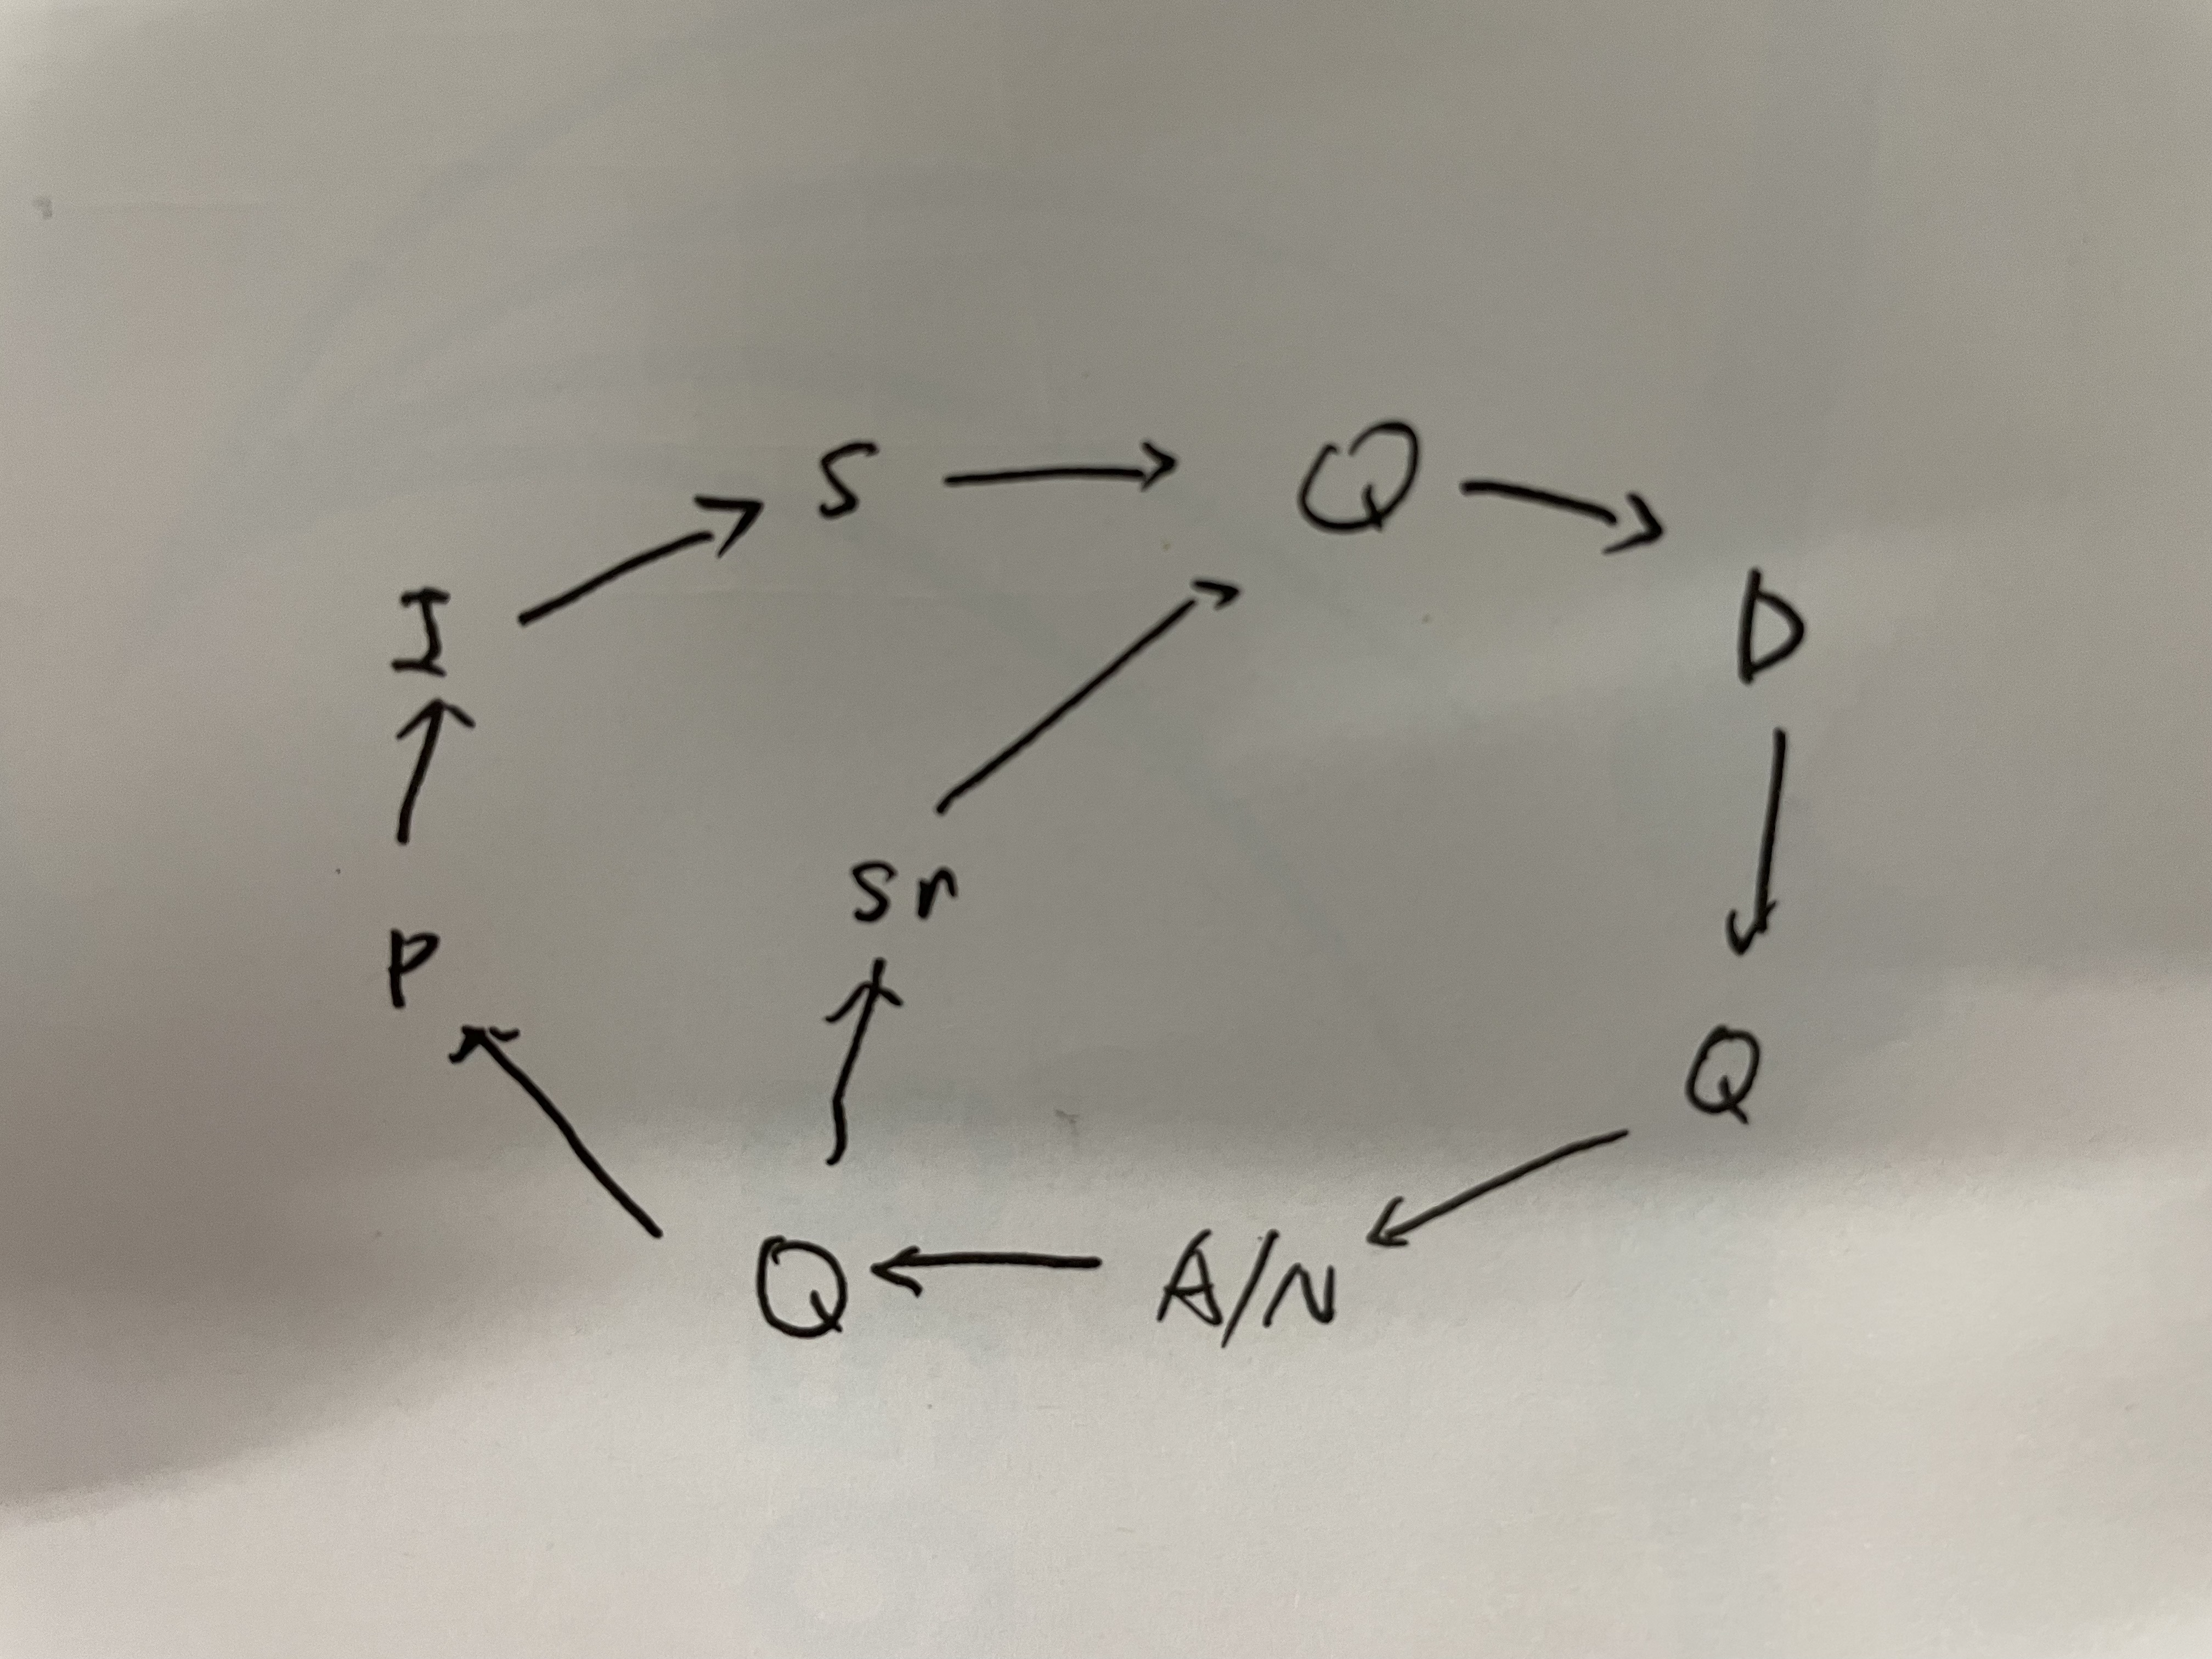 S → Q →
I
D
Sr
P
Q
Q ← A/N